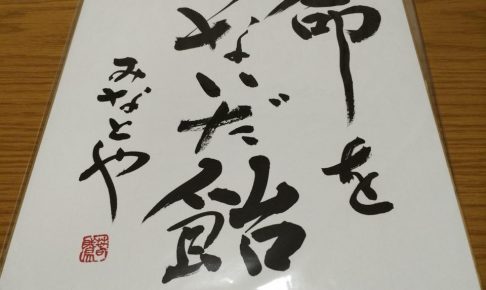 命を
ないだ飴
みなとや